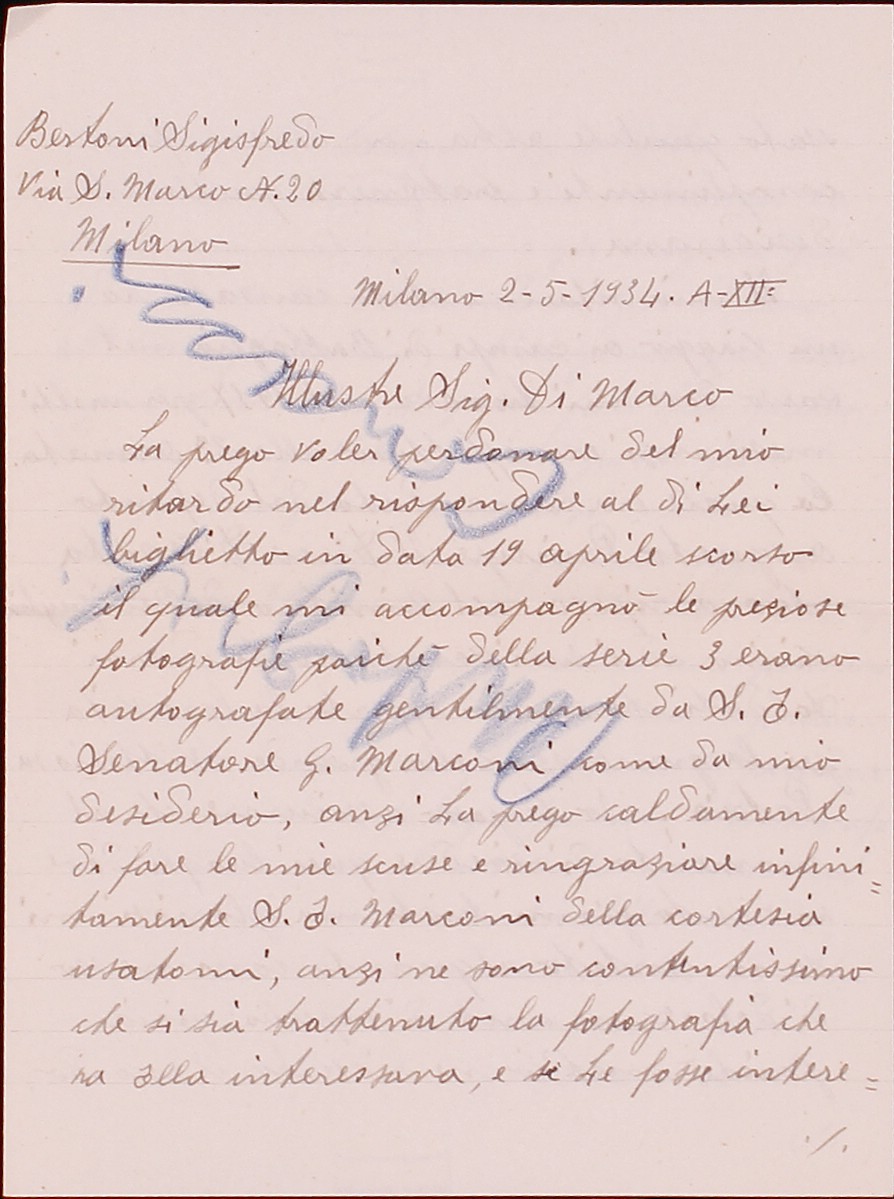 Bertoni Sigisfredo
Via S. Marco N. 20
Milano
Milano 2-5-1934. A-XII:
Illustre Sig. Di Marco
La prego voler perdonare del mio
ritardo nel rispondere al di Lei
biglietto in data 19 aprile scorso
il quale mi accompagnò le preziose
fotografie poiché della serie 3 erano
autografate gentilmente da S. E.
Senatore G. Marconi come da mio
desiderio, anzi La prego caldamente
di fare le mie scuse e ringraziare infini=
tamente S. E. Marconi della cortesia
usatomi, anzi ne sono contentissimo
che si sia trattenuto la fotografia che
interessava, e se Le fosse intere=
./.